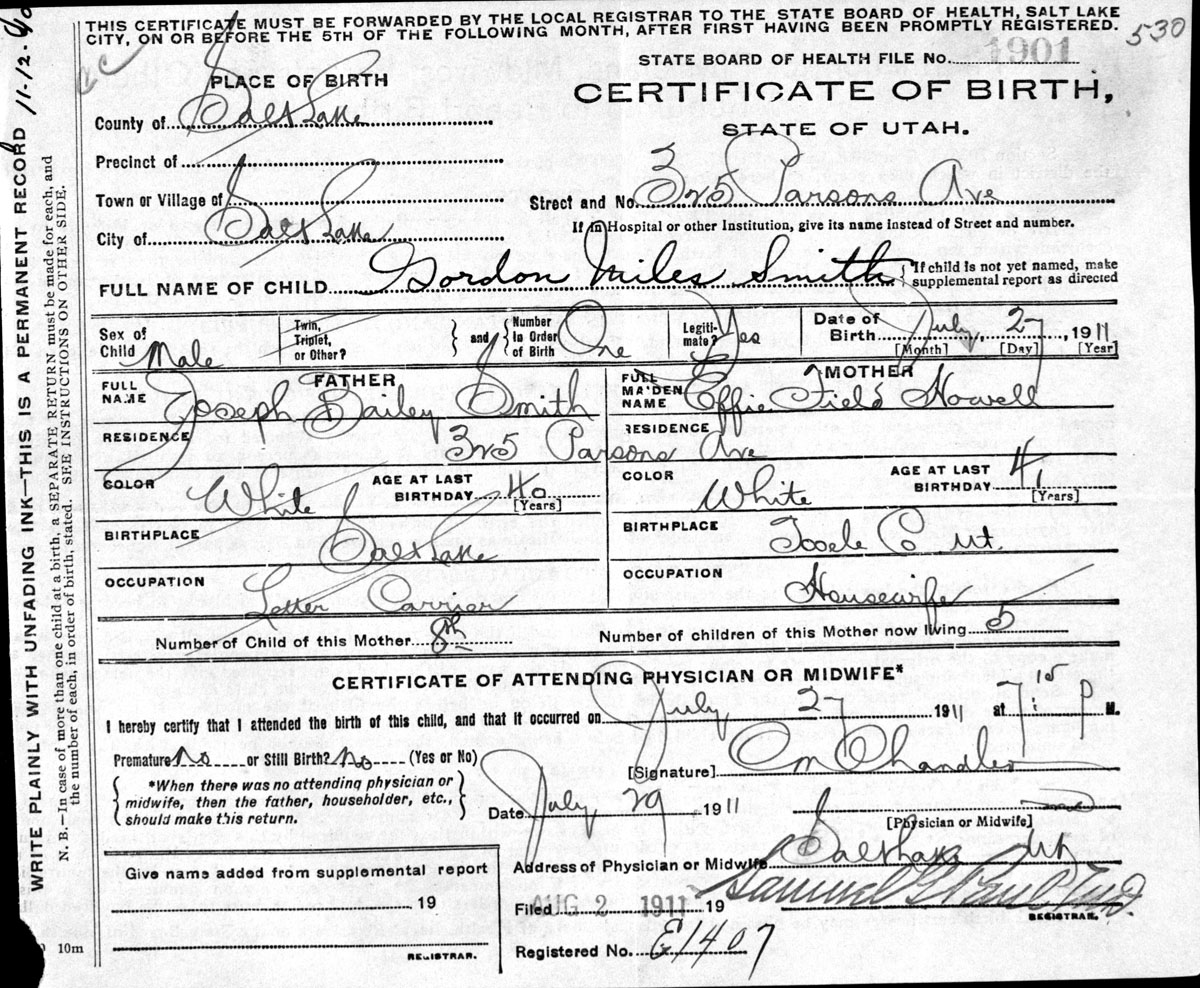 THIS CERTIFICATE MUST BE FORWARDED BY THE LOCAL REGISTRAR TO THE STATE BOARD OF HEALTH, SALT LAKE
CITY, ON OR BEFORE THE 5TH OF THE FOLLOWING MONTH, AFTER FIRST HAVING BEEN PROMPTLY REGISTERED.
530
STATE BOARD OF HEALTH FILE No. 1901
CERTIFICATE OF BIRTH,
STATE OF UTAH.
PLACE OF BIRTH
County of Salt Lake
Precinct of
Town or Village of
City of Salt Lake
Street and No. 325 Parsons Ave
If in Hospital or other Institution, give its name instead of Street and number.
FULL NAME OF CHILD Gordon Miles Smith { If child is not yet named, make
supplemental report as directed
Sex of Child Male
Twin, Triplet, or Other?
} and { Number in Order of Birth One
Legiti-mate? Yes
Date of Birth July 27, 1911
[Month] [Day] [Year]
FATHER
FULL NAME Joseph Bailey Smith
MOTHER
FULL MAIDEN NAME Effie Field Howell
RESIDENCE 325 Parsons Ave
RESIDENCE
COLOR White AGE AT LAST BIRTHDAY 40 [Years]
COLOR White AGE AT LAST BIRTHDAY 41 [Years]
BIRTHPLACE Salt Lake
BIRTHPLACE Tooele Co Ut.
OCCUPATION Letter Carrier
OCCUPATION Housewife
Number of Child of this Mother 8th
Number of children of this Mother now living 5
CERTIFICATE OF ATTENDING PHYSICIAN OR MIDWIFE*
I hereby certify that I attended the birth of this child, and that it occurred on July 27 1911 at 7:15 P M.
Premature No or Still Birth? No (Yes or No)
{ *When there was no attending physician or
midwife, then the father, householder, etc.,
should make this return. }
[Signature] C M Chandler
Date July 29, 1911
[Physician or Midwife]
Address of Physician or Midwife Salt Lake Ut
Give name added from supplemental report
19
REGISTRAR.
Filed AUG 2 1911 19
Samuel G Paul M.D.
REGISTRAR.
Registered No. E1407
10m
WRITE PLAINLY WITH UNFADING INK—THIS IS A PERMANENT RECORD
N. B.—In case of more than one child at a birth, a SEPARATE RETURN must be made for each, and
the number of each, in order of birth, stated. SEE INSTRUCTIONS ON OTHER SIDE.